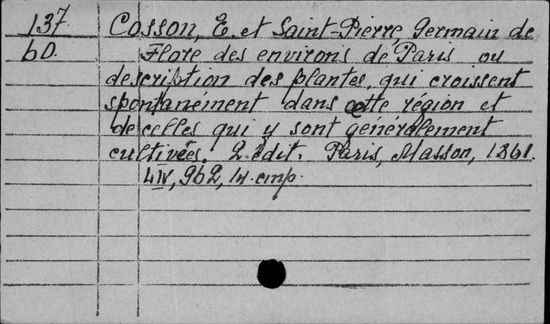 137 Cosson, E. et Saint-Pierre, Germain de
60. Flore des environs de Paris ou
description des plantes, qui croissent
spontanéiment dans cette région et
de celles qui y sont généralement
cultivées. 2 édit. Paris, Masson, 1861.
LIV, 962, 14 cmp.